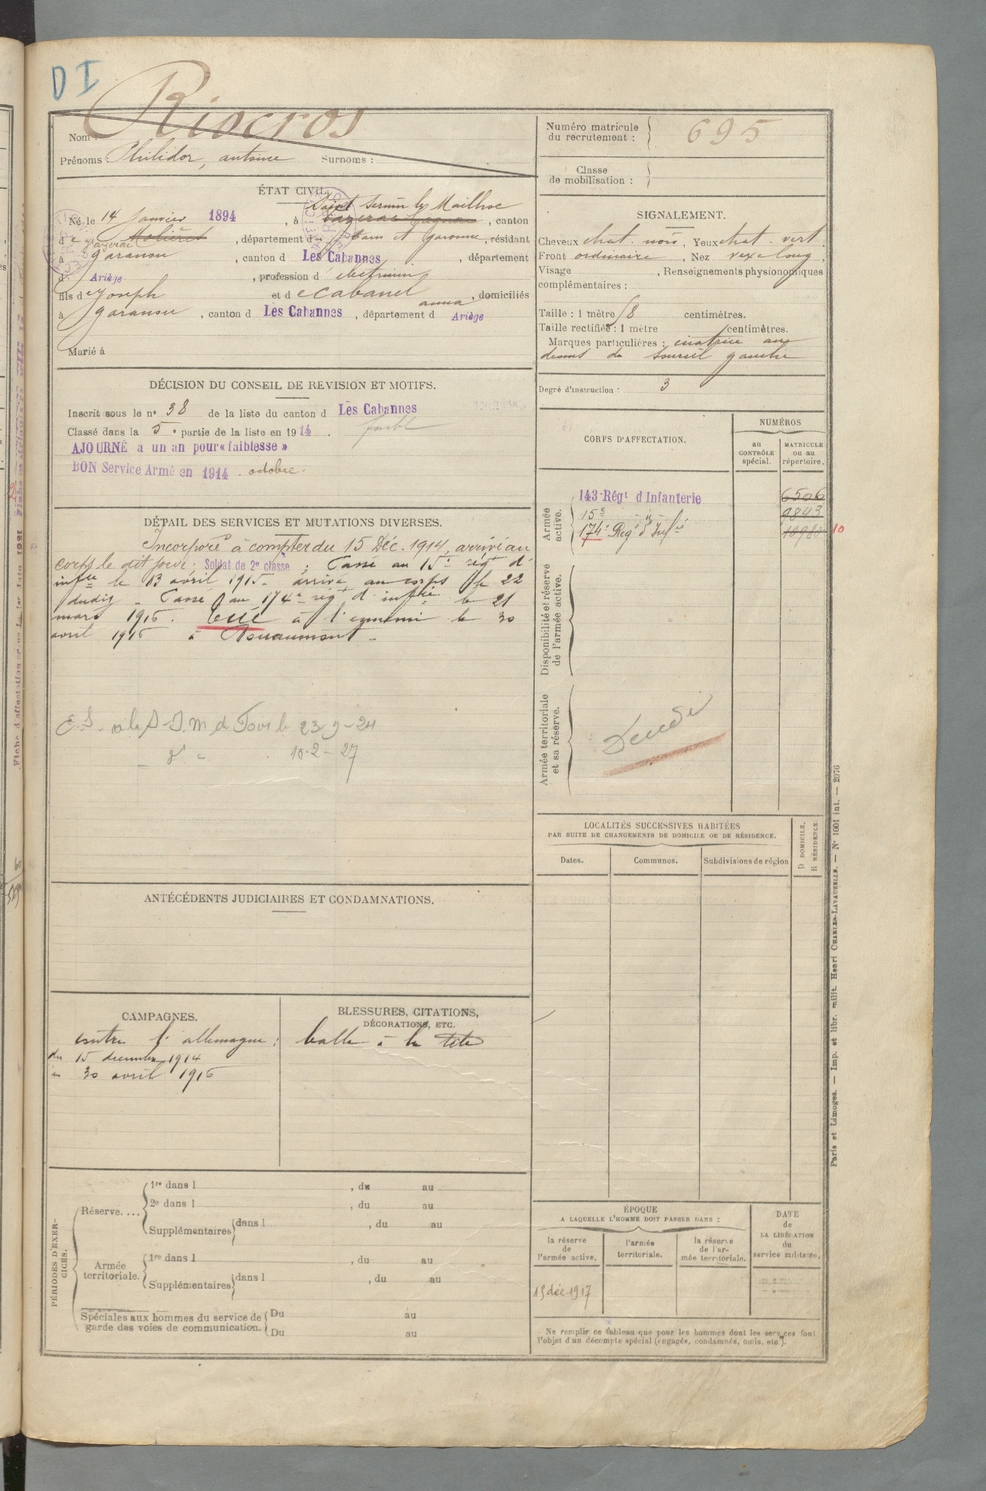 D I
Nom : Riocros
Prénoms : Philidor, antoine Surnoms :
Numéro matricule du recrutement : 695
Classe de mobilisation :
ÉTAT CIVIL.
Saint Sernin les Mailhoc
Né le 14 Janvier 1894, à , canton
d e Molières, département d , résidant
à garanou, canton d Les Cabannes, département
d Ariège, profession d'
fils d e Joseph et d e Cabanel anna, domiciliés
à garanou, canton d Les Cabannes, département d Ariège
Marié à
SIGNALEMENT.
Cheveux chat. noir, Yeux chat. vert.
Front ordinaire, Nez vexe long,
Visage , Renseignements physionomiques
complémentaires :
Taille : 1 mètre 58 centimètres.
Taille rectifiée : 1 mètre centimètres.
Marques particulières : cicatrice au
dessus du sourcil gauche
Degré d'instruction : 3
DÉCISION DU CONSEIL DE REVISION ET MOTIFS.
Inscrit sous le n° 38 de la liste du canton d Les Cabannes
Classé dans la 5e partie de la liste en 1914. faible
AJOURNÉ à un an pour « faiblesse »
BON Service Armé en 1914 . octobre.
CORPS D'AFFECTATION.
NUMÉROS
AU CONTRÔLE spécial.
MATRICULE ou au répertoire.
Armée active.
143e Régt d'Infanterie 6506
15e -"- 9843
174e Reg. d'Infie 10980 10
Disponibilité et réserve de l'armée active.
Armée territoriale et sa réserve.
DÉTAIL DES SERVICES ET MUTATIONS DIVERSES.
Incorporé à compter du 15 Déc. 1914, arrivé au
corps le dit jour. Soldat de 2e classe ; Passé au 15e rég d'
infie le 13 avril 1915. arrivé au corps le 22
dudit. Passé au 174e régt d'infie le 21
mars 1916. Tué à l'ennemi le 30
avril 1916 à Douaumont.
23-9-24
10-2-27
LOCALITÉS SUCCESSIVES HABITÉES
PAR SUITE DE CHANGEMENTS DE DOMICILE OU DE RÉSIDENCE.
Dates. Communes. Subdivisions de région
D DOMICILE.
R RÉSIDENCE.
ANTÉCÉDENTS JUDICIAIRES ET CONDAMNATIONS.
CAMPAGNES.
contre l'allemagne :
du 15 décembre 1914
au 30 avril 1916
BLESSURES, CITATIONS,
DÉCORATIONS, ETC.
balle à la tête
PÉRIODES D'EXERCICES.
Réserve....
1re dans l , du au
2e dans l , du au
Supplémentaires dans l , du au
Armée territoriale.
1re dans l , du au
Supplémentaires dans l , du au
Spéciales aux hommes du service de garde des voies de communication.
Du au
Du au
ÉPOQUE
A LAQUELLE L'HOMME DOIT PASSER DANS :
la réserve de l'armée active.
l'armée territoriale.
la réserve de l'armée territoriale.
DATE de LA LIBÉRATION du service militaire.
15 déc 1917
Ne remplir ce tableau que pour les hommes dont les services font
l'objet d'un décompte spécial (engagés, condamnés, omis, etc.).
Paris et Limoges. — Imp. et libr. milit. Henri CHARLES-LAVAUZELLE. — N° 1601 int. — 2076